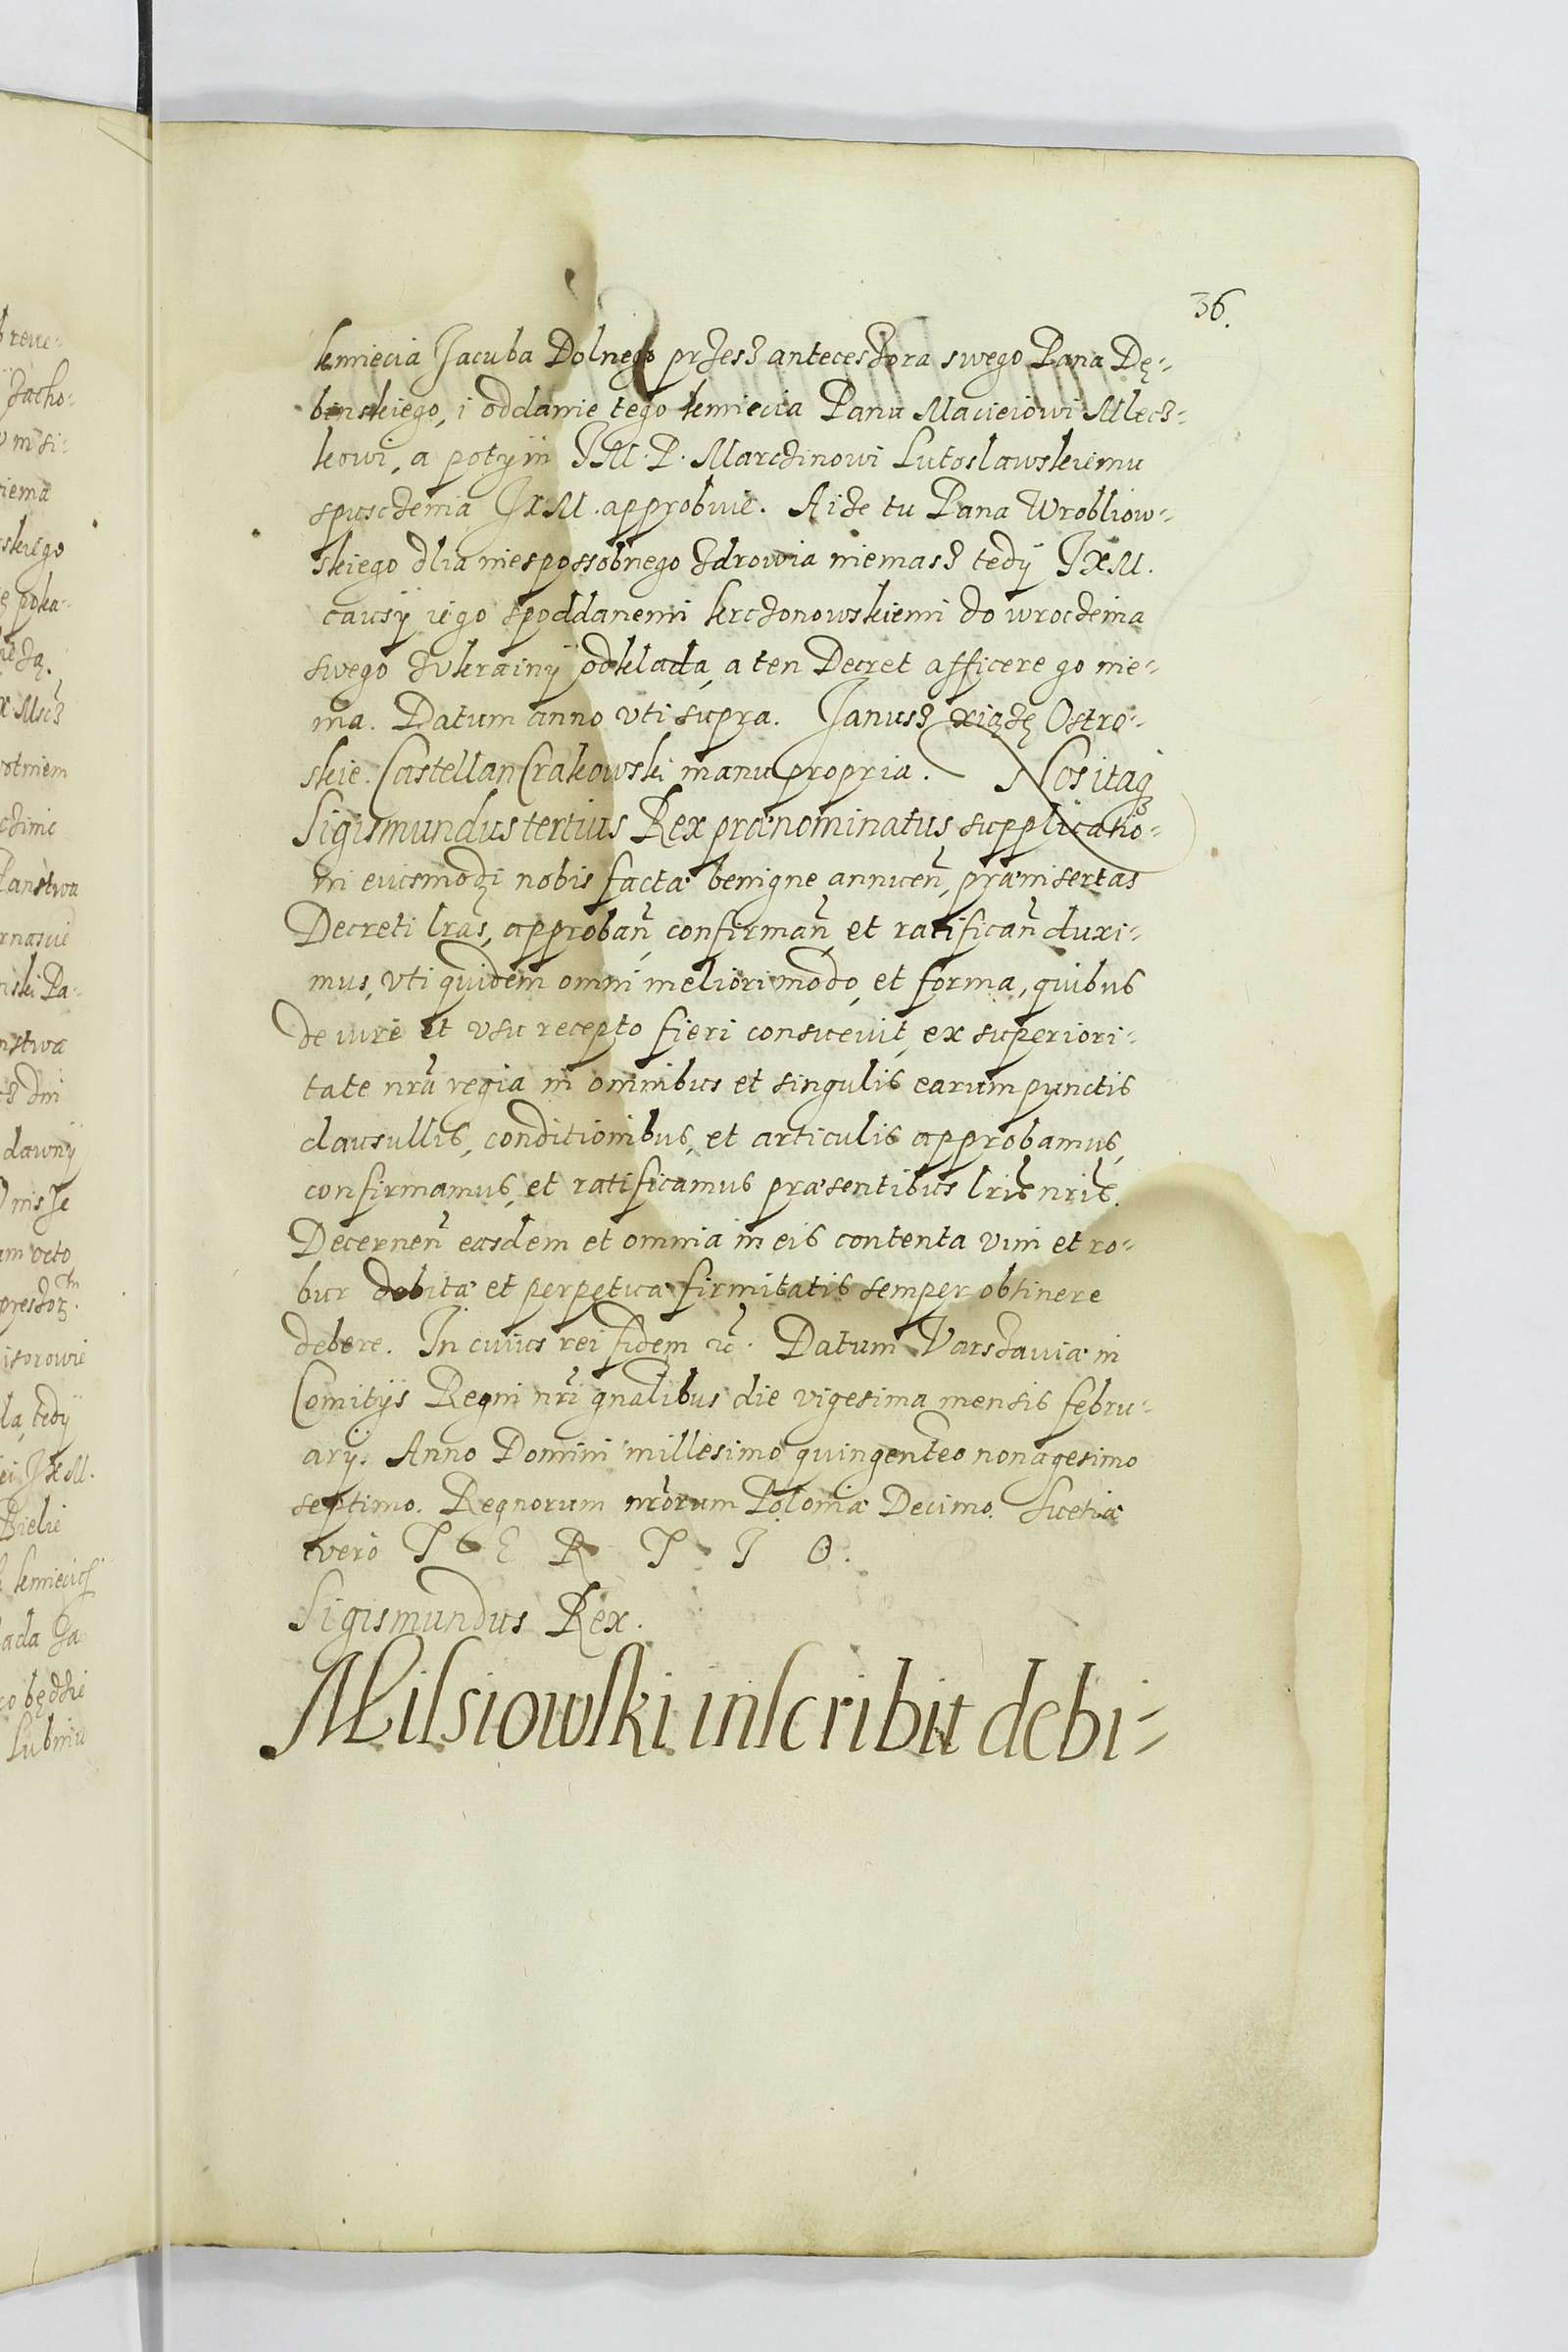 36.
kmiecia Jacuba Dolnego przesz antecessora swego Pana Dę-
binskiego, i oddanie tego kmiecia Panu Macieiowi Mlecz-
kowi, a potym JM. P. Marczinowi Lutoslawskiemu
spusczenia JXM. approbuie. A ize tu Pana Wrobliow-
skiego dlia niespossobnego zdrowia niemasz tedÿ JXM.
causÿ iego spoddanemi krczonowskiemi do wroczenia
swego zukrainÿ odklada, a ten Decret afficere go nie-
ma. Datum anno vti supra. Janusz xiążę Ostro-
skie. Castellan Crakowski manu propria. Nos itaqꝫ
Sigismundus tertius Rex prænominatus supplicatio-
ni eiusmodi nobis factæ benigne annuen̄, præinsertas
Decreti lr̄as, approban̄, confirman̄, et ratifican̄ duxi-
mus, vti quidem omni meliori modo, et forma, quibus
de iure et vsu recepto fieri consuevit, ex superiori-
tate nr̄a regia in omnibus et singulis earum punctis
clausullis, conditionibus, et articulis approbamus,
confirmamus, et ratificamus præsentibus lr̄is nr̄is.
Decernen̄ easdem et omnia in eis contenta vim et ro-
bur debitæ et perpetuæ firmitatis semper obtinere
debere. In cuius rei fidem &c. Datum Varszauiæ in
Comitijs Regni nr̄i gn̄alibus die vigesima mensis febru-
arÿ. Anno Domini millesimo quingenteo nonagesimo
septimo. Regnorum nr̄orum Poloniæ Decimo. Suetiæ
vero T E R T I O.
Sigismundus Rex.
Milsiowski inscribit debi-